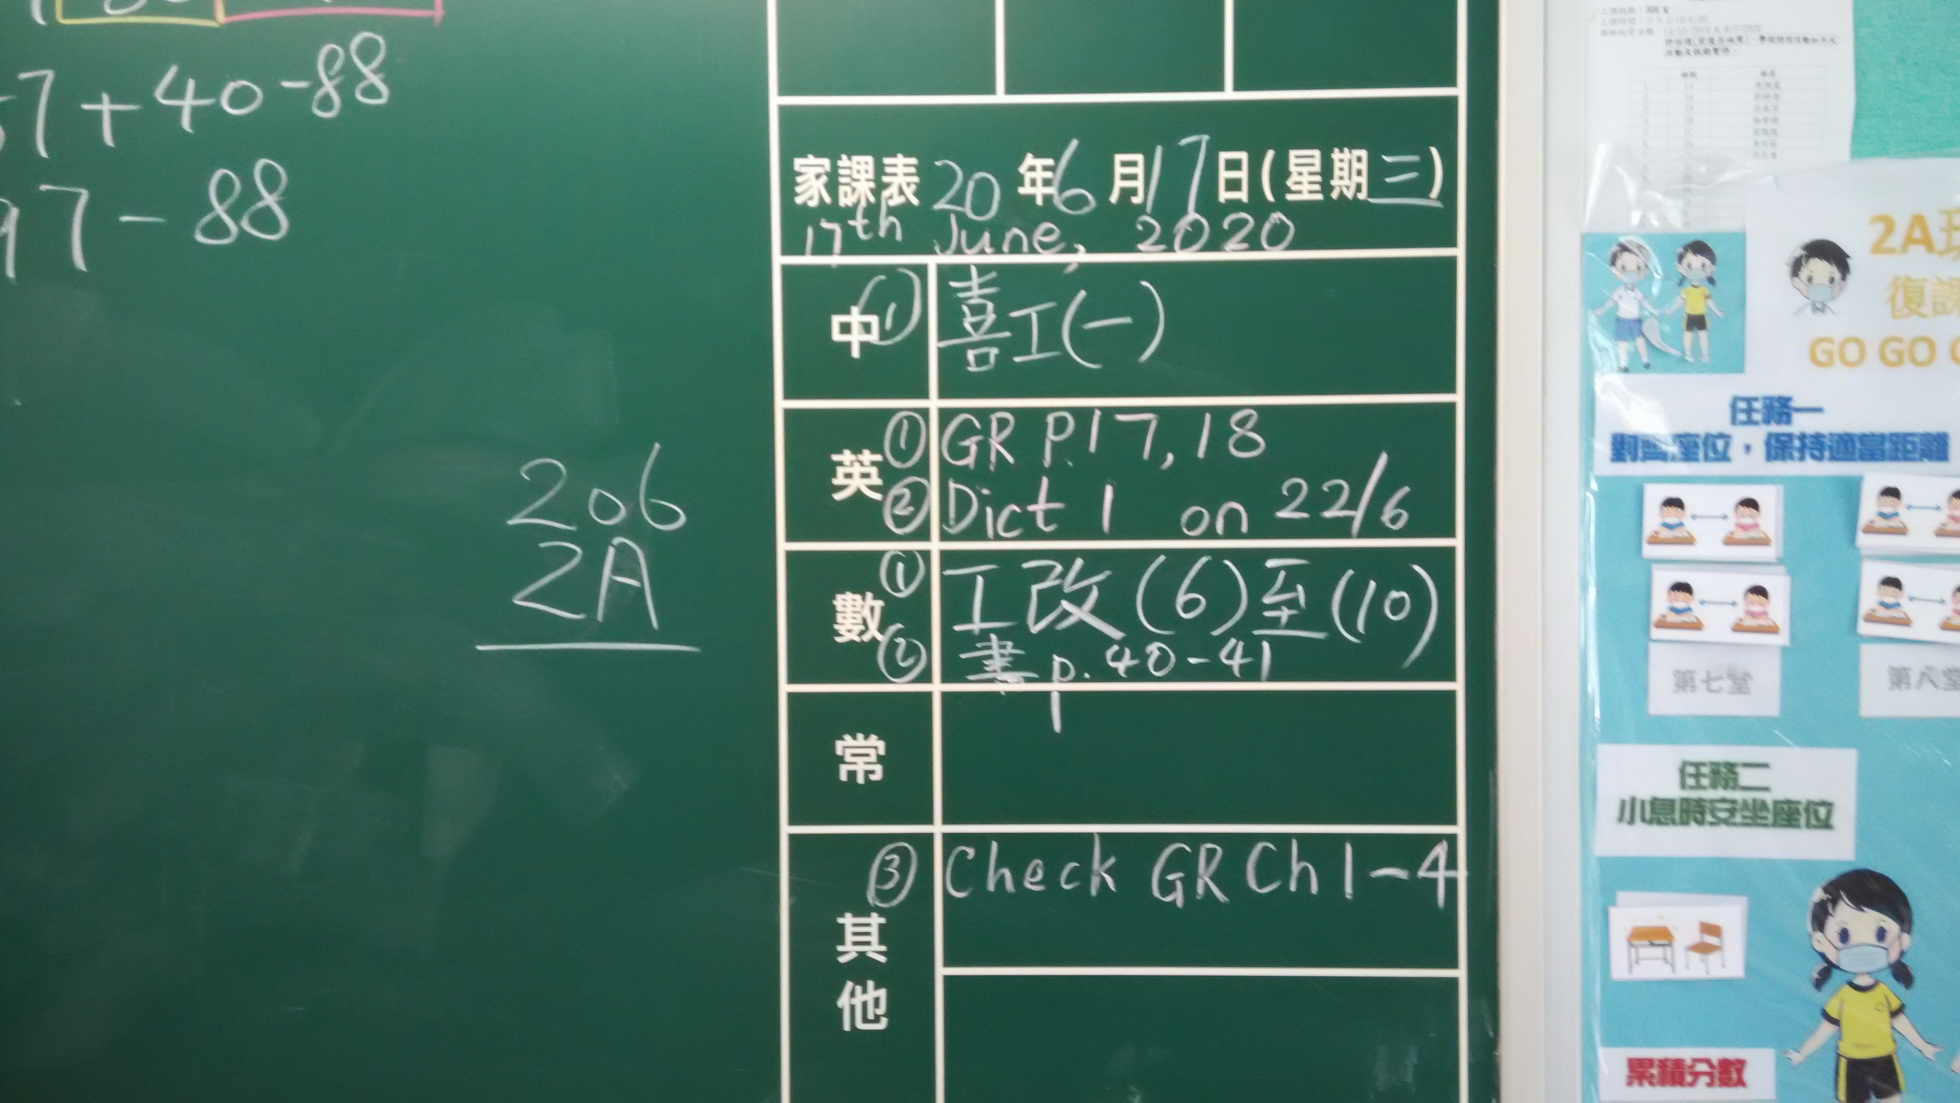 7+40-88
97-88
206
2A
家課表 20 年 6 月 17 日(星期三)
17th June, 2020
中 ① 喜工(一)
英 ① GR P.17,18
② Dict 1 on 22/6
數 ① 工改(6)至(10)
② 書 p.40-41
常
其他 ③ Check GR Ch 1-4
2A
復課
GO GO
任務一
對齊座位，保持適當距離
第七堂
第八堂
任務二
小息時安坐座位
累積分數